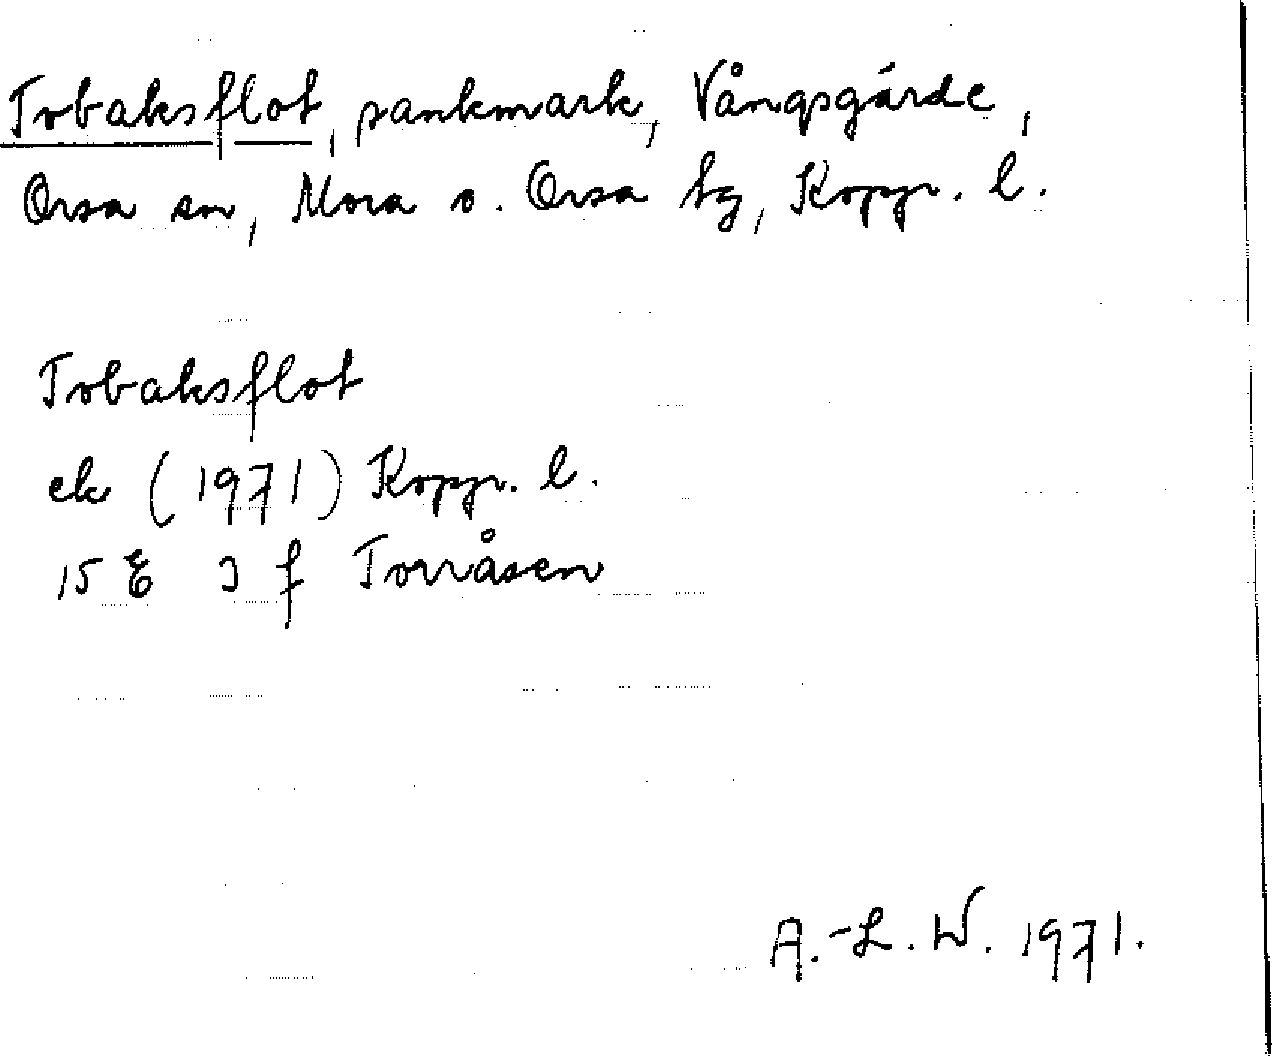 Tobaksflot, sankmark, Vångsgärde,
Orsa sn, Mora o. Orsa tg, Kopp. l.
Tobaksflot
ek (1971) Kopp. l.
15 E 3 f Torråsen
A.-L. W. 1971.